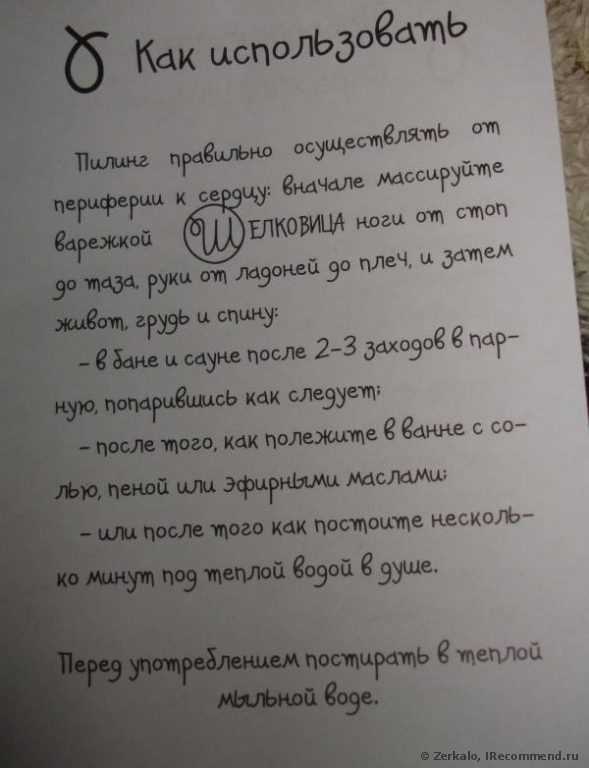 Как использовать
Пилинг правильно осуществлять от
периферии к сердцу: вначале массируйте
варежкой ШЕЛКОВИЦА ноги от стоп
до таза, руки от ладоней до плеч, и затем
живот, грудь и спину:
– в бане и сауне после 2–3 заходов в пар–
ную, попарившись как следует;
– после того, как полежите в ванне с со–
лью, пеной или эфирными маслами;
– или после того как постоите несколь–
ко минут под теплой водой в душе.
Перед употреблением постирать в теплой
мыльной воде.
© Zerkalo, IRecommend.ru